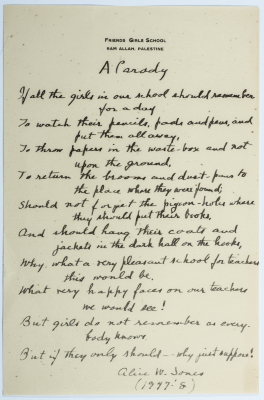 FRIENDS GIRLS SCHOOL
RAM ALLAH, PALESTINE
A Parody
If all the girls in our school should remember
for a day
To watch their pencils, pads and pens, and
put them all away,
To throw papers in the waste-box and not
upon the ground,
To return the brooms and dust-pans to
the place where they were found;
Should not forget the pigeon-holes where
they should put their books,
And should hang their coats and
jackets in the dark hall on the hooks,
Why, what a very pleasant school for teachers
this would be,
What very happy faces on our teachers
we would see!
But girls do not remember as every-
body knows
But if they only should -- why just suppose!
Alice W. Jones